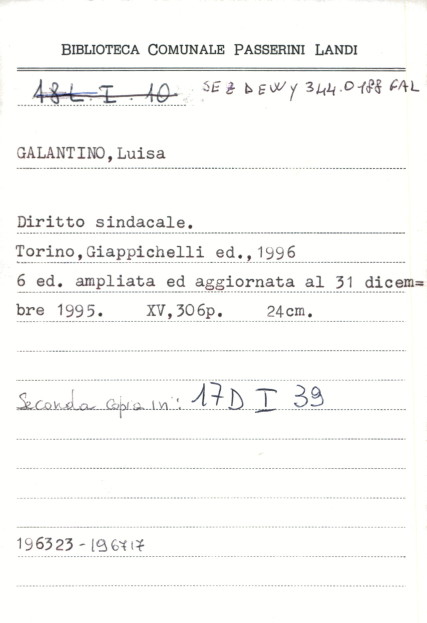 BIBLIOTECA COMUNALE PASSERINI LANDI
18L. I. 10 SEZ DEWY 344.0188 GAL
GALANTINO,Luisa
Diritto sindacale.
Torino,Giappichelli ed.,1996
6 ed. ampliata ed aggiornata al 31 dicem=
bre 1995. XV,306p. 24cm.
Seconda copia in: 17D I 39
196323-196717